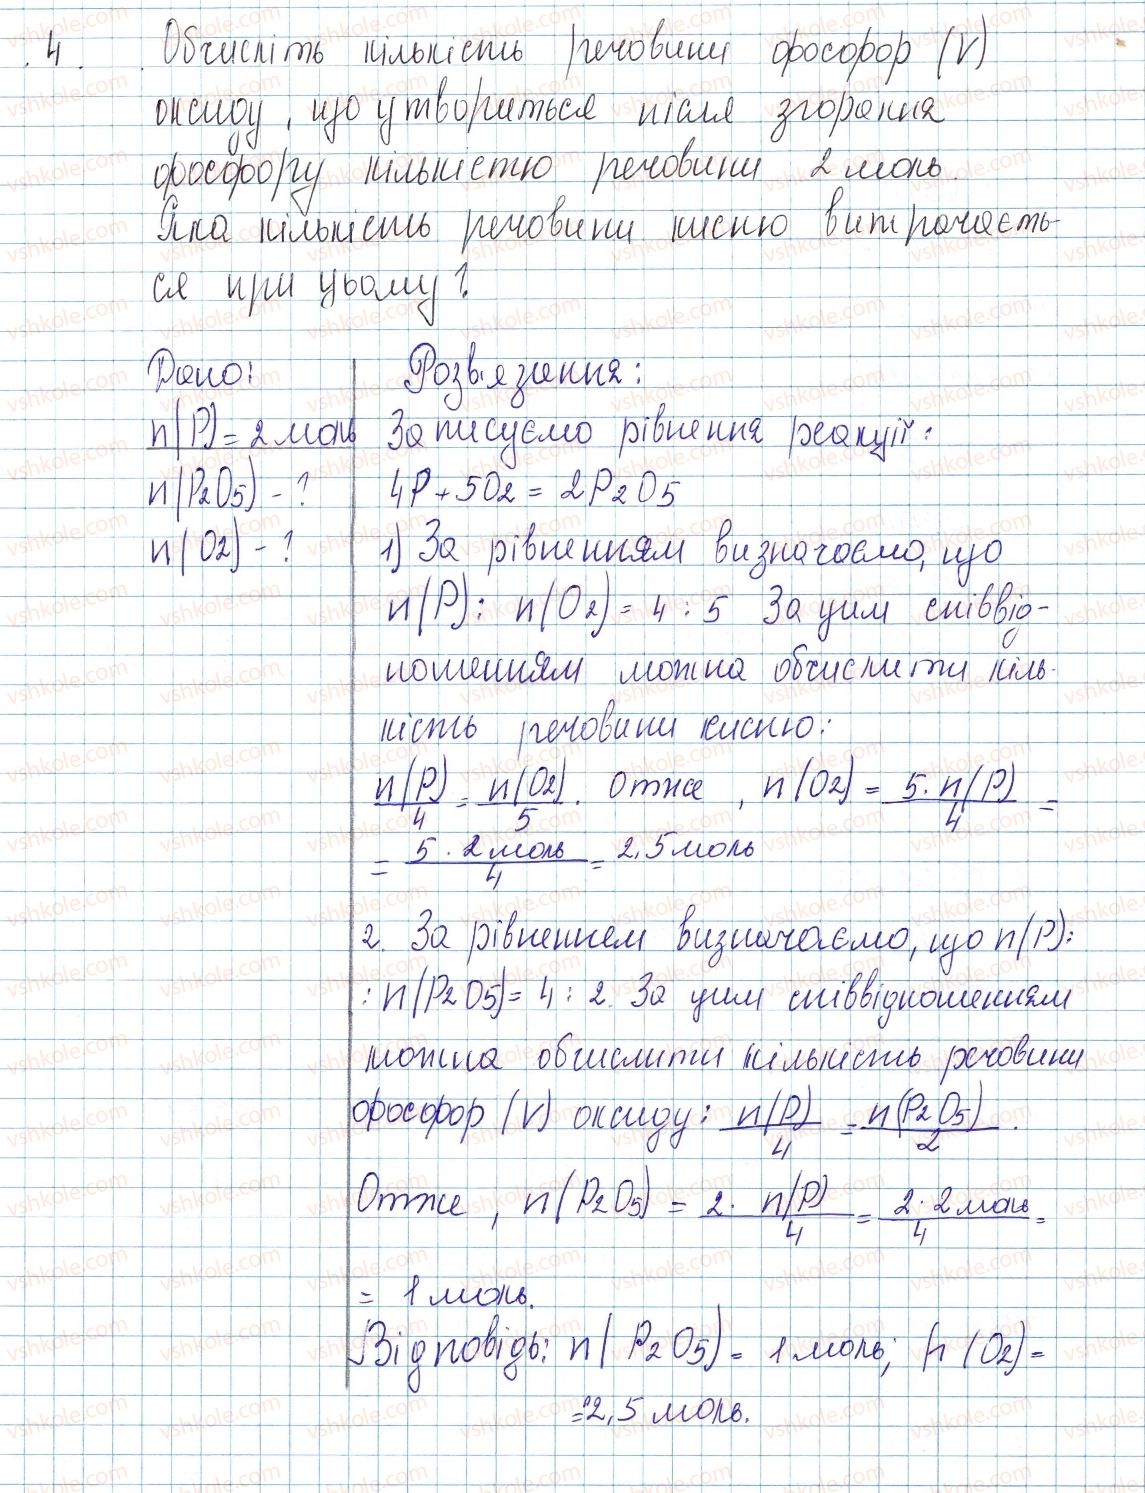 4. Обчисліть кількість речовини фосфор (V)
оксиду, що утвориться після згорання
фосфору кількістю речовини 2 моль.
Яка кількість речовини кисню витрачаєть-
ся при цьому?
Дано:
n(P) = 2 моль
n(P2O5) - ?
n(O2) - ?
Розв'язання:
Записуємо рівнення реакції:
4P + 5O2 = 2P2O5
1) За рівненням визначаємо, що
n(P) : n(O2) = 4 : 5 За цим співвід-
ношенням можна обчислити кіль-
кість речовини кисню:
n(P)/4 = n(O2)/5. Отже, n(O2) = 5·n(P)/4 =
= 5·2моль/4 = 2,5 моль
2. За рівненнєм визначаємо, що n(P):
: n(P2O5) = 4 : 2. За цим співвідношенням
можна обчислити кількість речовини
фосфор (V) оксиду: n(P)/4 = n(P2O5)/2.
Отже, n(P2O5) = 2·n(P)/4 = 2·2моль/4 =
= 1 моль.
Відповідь: n(P2O5) = 1 моль; n(O2) =
=2,5 моль.
vshkole.com